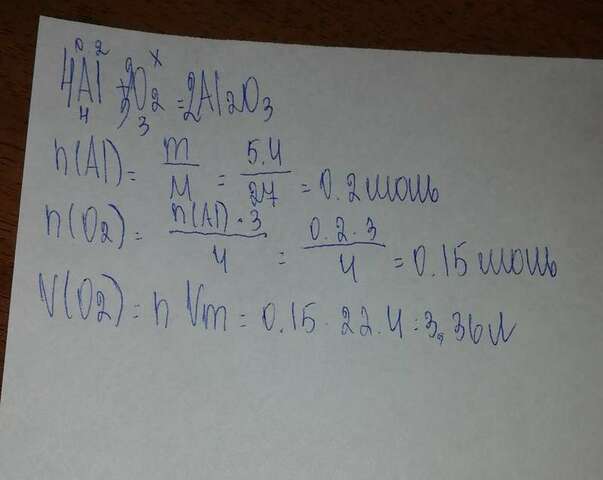 0.2 x
4Al + 3O2 = 2Al2O3
4 3
n(Al) = m/M = 5.4/27 = 0.2 моль
n(O2) = n(Al)·3/4 = 0.2·3/4 = 0.15 моль
V(O2) = n Vm = 0.15·22.4 = 3,36 л